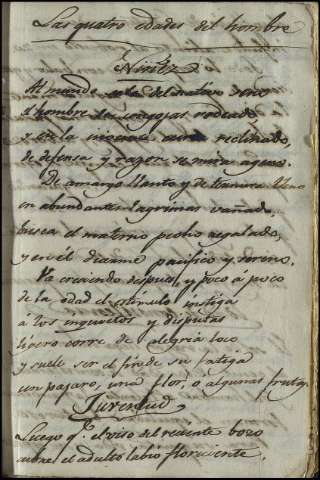 Las quatro edades del hombre
Niñez
Al mundo sale del materno seno
el hombre de congojas rodeado,
y en la inocente cuna reclinado,
de defensa y razon se mira ageno.
De amargo llanto y de ternura lleno
en abundantes lagrimas vañado,
busca el materno pecho regalado,
y en él duerme pacifico y sereno.
Va creciendo despues, y poco á poco
de la edad el estimulo instiga
á los inquietos y disputas
ligero corre de alegria loco
y suele ser el fin de su fatiga
un pajaro, una flor, ó algunas frutas
Juventud
Luego q.e el viso del reciente bozo
cubre el adulto labio floreciente,